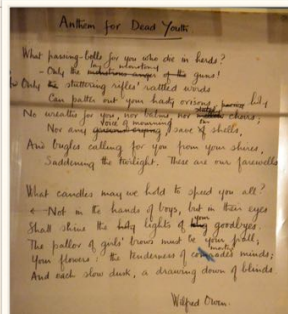 Anthem for Dead Youth
What passing-bells for you who die in herds?
- Only the monstrous anger of the guns!
Only the stuttering rifles' rattled words
Can patter out your hasty orisons
No wreaths for you, nor balms, nor choirs;
Nor any voice of mourning, save of shells,
And bugles calling for you from your shires,
Saddening the twilight. These are our farewells
What candles may we hold to speed you all?
Not in the hands of boys, but in their eyes
Shall shine the holy lights of goodbyes.
The pallor of girls' brows must be your pall;
Your flowers: the tenderness of comrades' minds;
And each slow dusk, a drawing down of blinds.
Wilfred Owen.